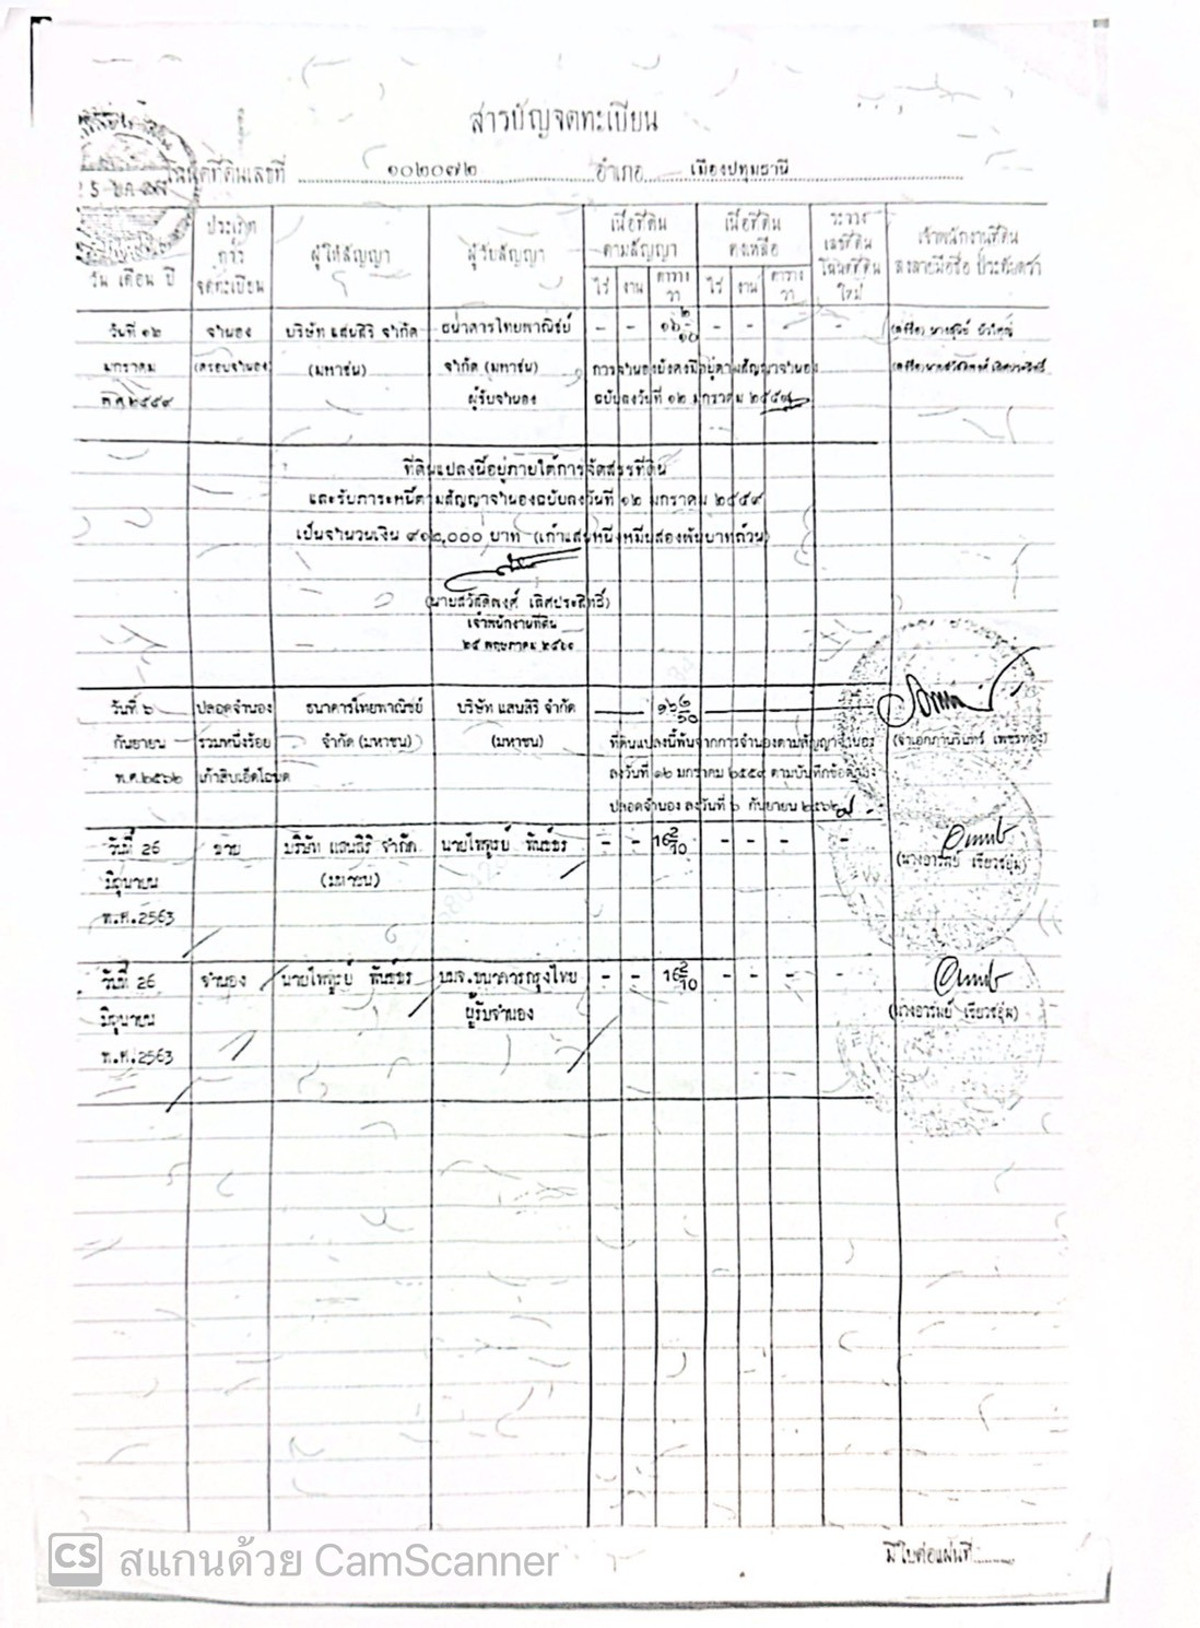 สารบัญจดทะเบียน
โฉนดที่ดินเลขที่ ๑๐๒๐๗๒ อำเภอ เมืองปทุมธานี
วัน เดือน ปี
ประเภท การ จดทะเบียน
ผู้ให้สัญญา
ผู้รับสัญญา
เนื้อที่ดิน ตามสัญญา
ไร่ งาน ตารางวา
เนื้อที่ดิน คงเหลือ
ไร่ งาน ตารางวา
ระวาง เลขที่ดิน โฉนดที่ดิน ใหม่
เจ้าพนักงานที่ดิน ลงลายมือชื่อ ประทับตรา
วันที่ ๑๒ จำนอง บริษัท แสนสิริ จำกัด ธนาคารไทยพาณิชย์ - - ๑๖ ๒/๑๐ - - - -
มกราคม (ครอบจำนอง) (มหาชน) จำกัด (มหาชน) การจำนองยังคงมีอยู่ตามสัญญาจำนอง
พ.ศ.๒๕๕๙ ผู้รับจำนอง ฉบับลงวันที่ ๑๒ มกราคม ๒๕๕๙
ที่ดินแปลงนี้อยู่ภายใต้การจัดสรรที่ดิน
และรับภาระหนี้ตามสัญญาจำนองฉบับลงวันที่ ๑๒ มกราคม ๒๕๕๙
เป็นจำนวนเงิน ๙๑๒,๐๐๐ บาท (เก้าแสนหนึ่งหมื่นสองพันบาทถ้วน)
(นายสวัสดิพงศ์ เลิศประสิทธิ์)
เจ้าพนักงานที่ดิน
๒๕ พฤษภาคม
วันที่ ๖ ปลอดจำนอง ธนาคารไทยพาณิชย์ บริษัท แสนสิริ จำกัด
กันยายน รวมหนึ่งร้อย จำกัด (มหาชน) (มหาชน) ที่ดินแปลงนี้พ้นจากการจำนองตามสัญญาจำนอง (จ่าเอกภานรินทร์ เพชรทอง)
พ.ศ.๒๕๖๒ เก้าสิบเอ็ดโฉนด ลงวันที่ ๑๒ มกราคม ๒๕๕๙ ตามบันทึกข้อตกลง
ปลอดจำนอง ลงวันที่ ๖ กันยายน ๒๕๖๒
วันที่ 26 ขาย บริษัท แสนสิริ จำกัด นายไพฑูรย์ - - 16 2/10 - - - -
มิถุนายน (มหาชน)
พ.ศ.2563
วันที่ 26 จำนอง นายไพฑูรย์ บมจ.ธนาคารกรุงไทย - - 16 2/10 - - - -
มิถุนายน ผู้รับจำนอง
พ.ศ.2563
มีใบต่อแผ่นที่
CS สแกนด้วย CamScanner